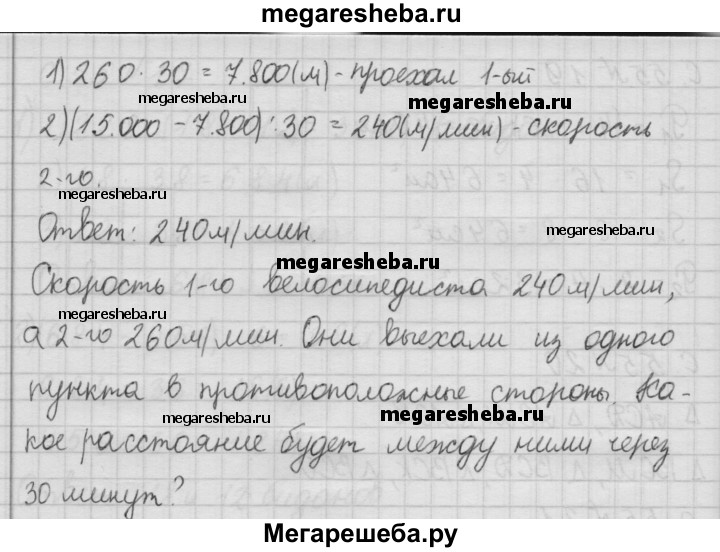 megaresheba.ru
1) 260 · 30 = 7.800(м) - проехал 1-ый
megaresheba.ru megaresheba.ru
2) (15.000 - 7.800) : 30 = 240(м/мин) - скорость
2-го.
megaresheba.ru
Ответ: 240м/мин.
megaresheba.ru megaresheba.ru
Скорость 1-го велосипедиста 240м/мин,
а 2-го 260м/мин. Они выехали из одного
пункта в противоположные стороны. Ка-
megaresheba.ru megaresheba.ru
кое расстояние будет между ними через
30 минут?
Мегарешеба.ру